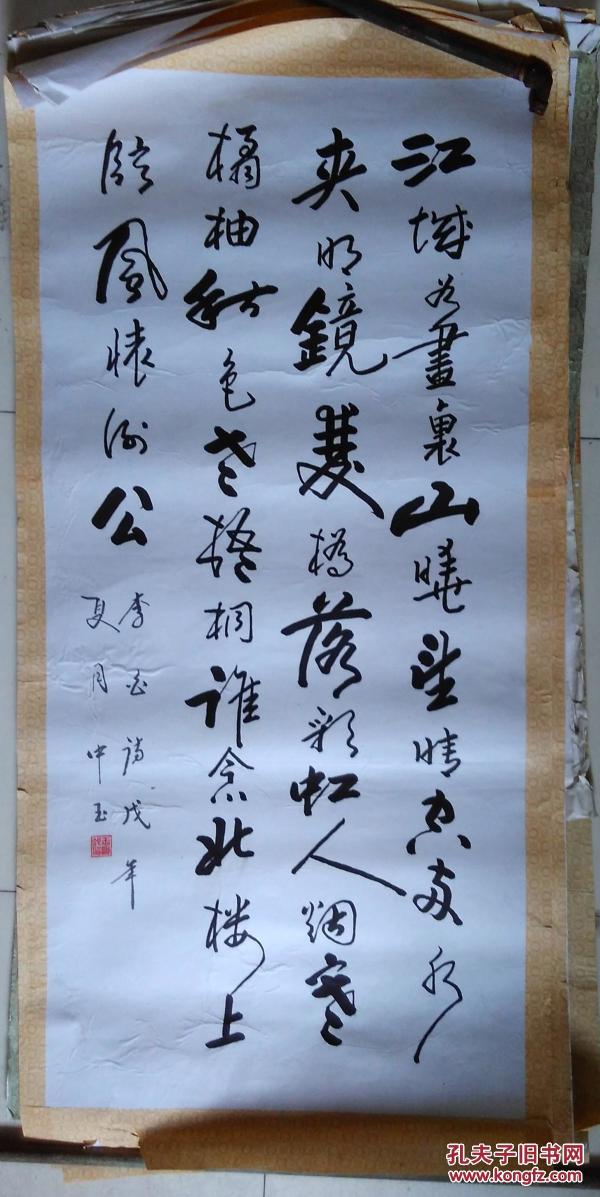 江城如畫裏山曉望晴空两水
夾明鏡雙橋落彩虹人烟寒
橘柚秋色老梧桐誰念北楼上
臨風懷謝公
李白詩戊年
夏月中玉
孔夫子旧书网
www.kongfz.com